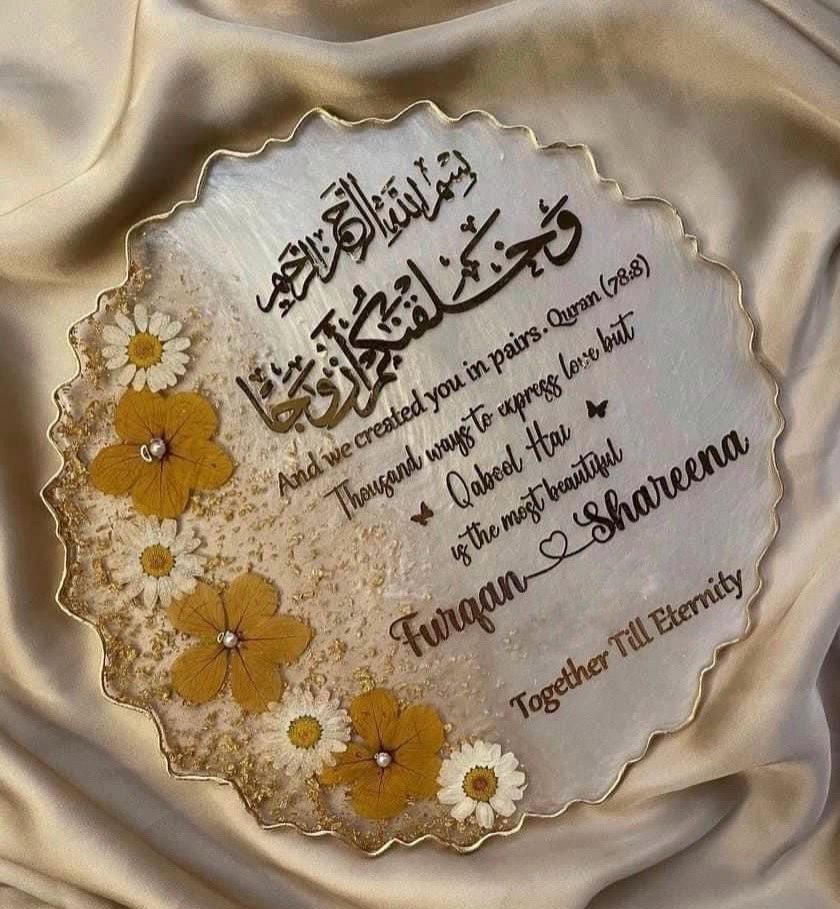 بسم الله الرحمن الرحيم
وَخَلَقْنَكُمْ أَزْوَجًا
And we created you in pairs. Quran (78:8)
Thousand ways to express love but
Qabool Hai
is the most beautiful
Furqan Shareena
Together Till Eternity